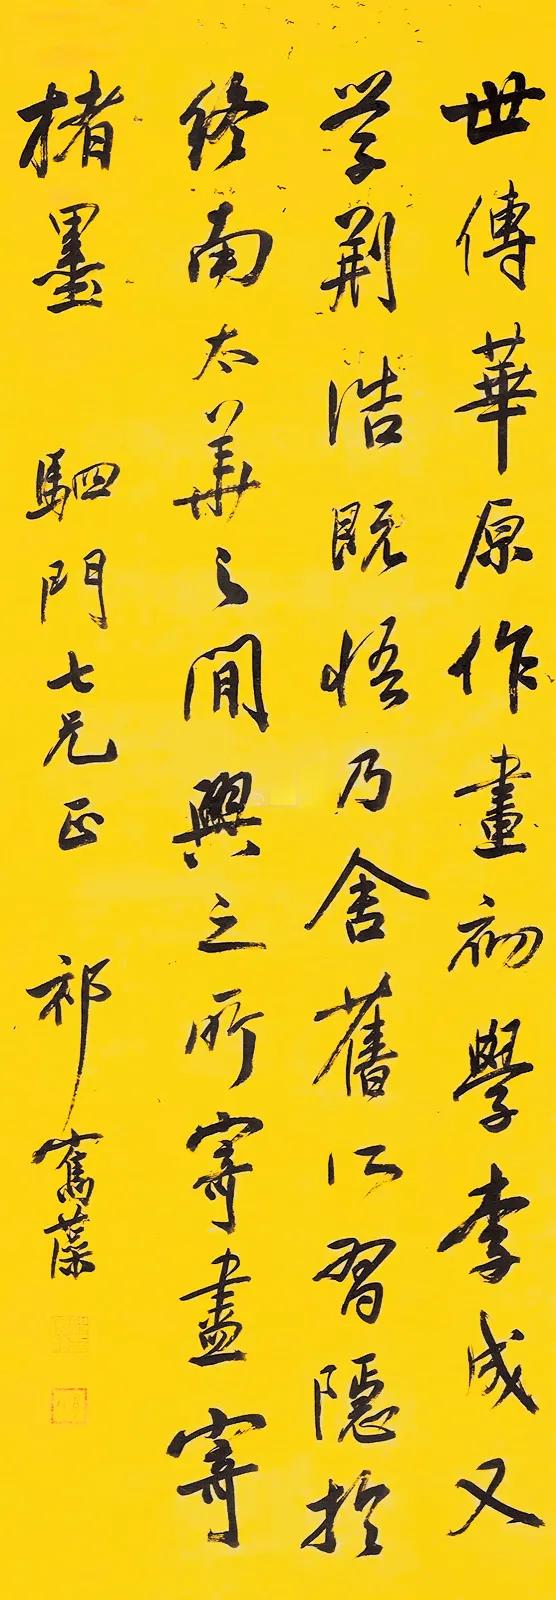 世傳華原作畫初學李成又
学荆浩既悟乃舍舊以習隱於
終南太華之間興之所寄盡寄
楮墨
駟門七兄正
祁寯藻